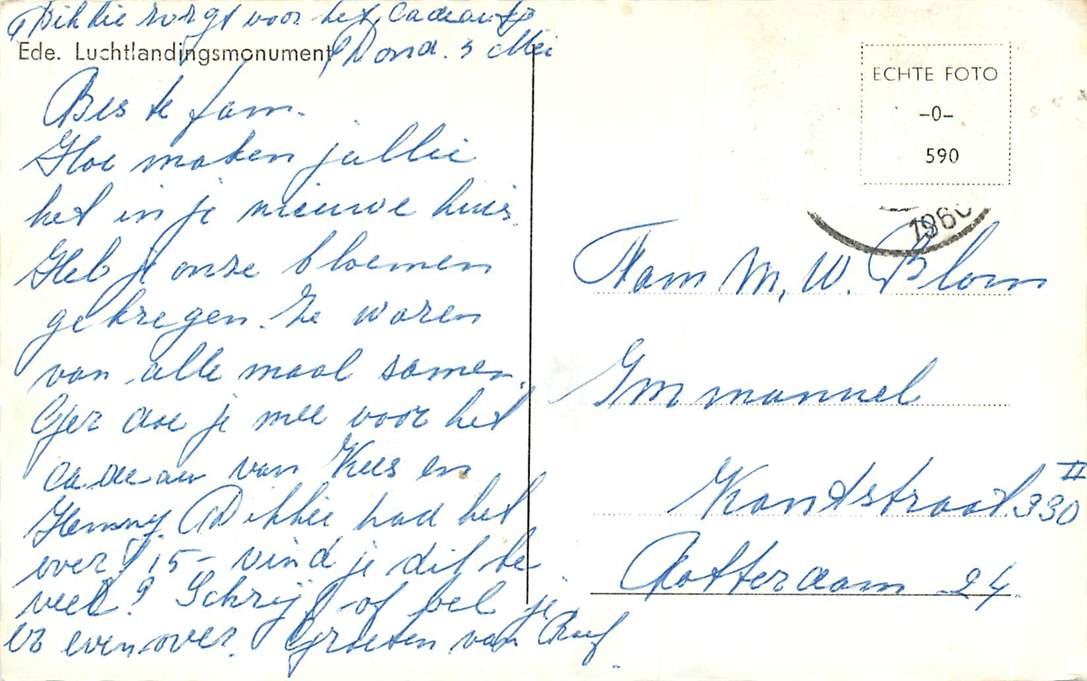 Dikkie zorgt voor het cadeautje
Ede. Luchtlandingsmonument
Dond. 5 Mei
Beste fam.
Hoe maken jullie
het in je nieuwe huis.
Heb je onze bloemen
gekregen. Ze waren
van alle maal samen.
Ger doe je mee voor het
cadeau van Kees en
Henny. Dikkie had het
over f 15- vind je dit te
veel? Schrijf of bel je
er even over. Groeten van
ECHTE FOTO
-0-
590
1960
Fam M. W. Blom
Immanuel
Kantstraat 330 II
Rotterdam 24.